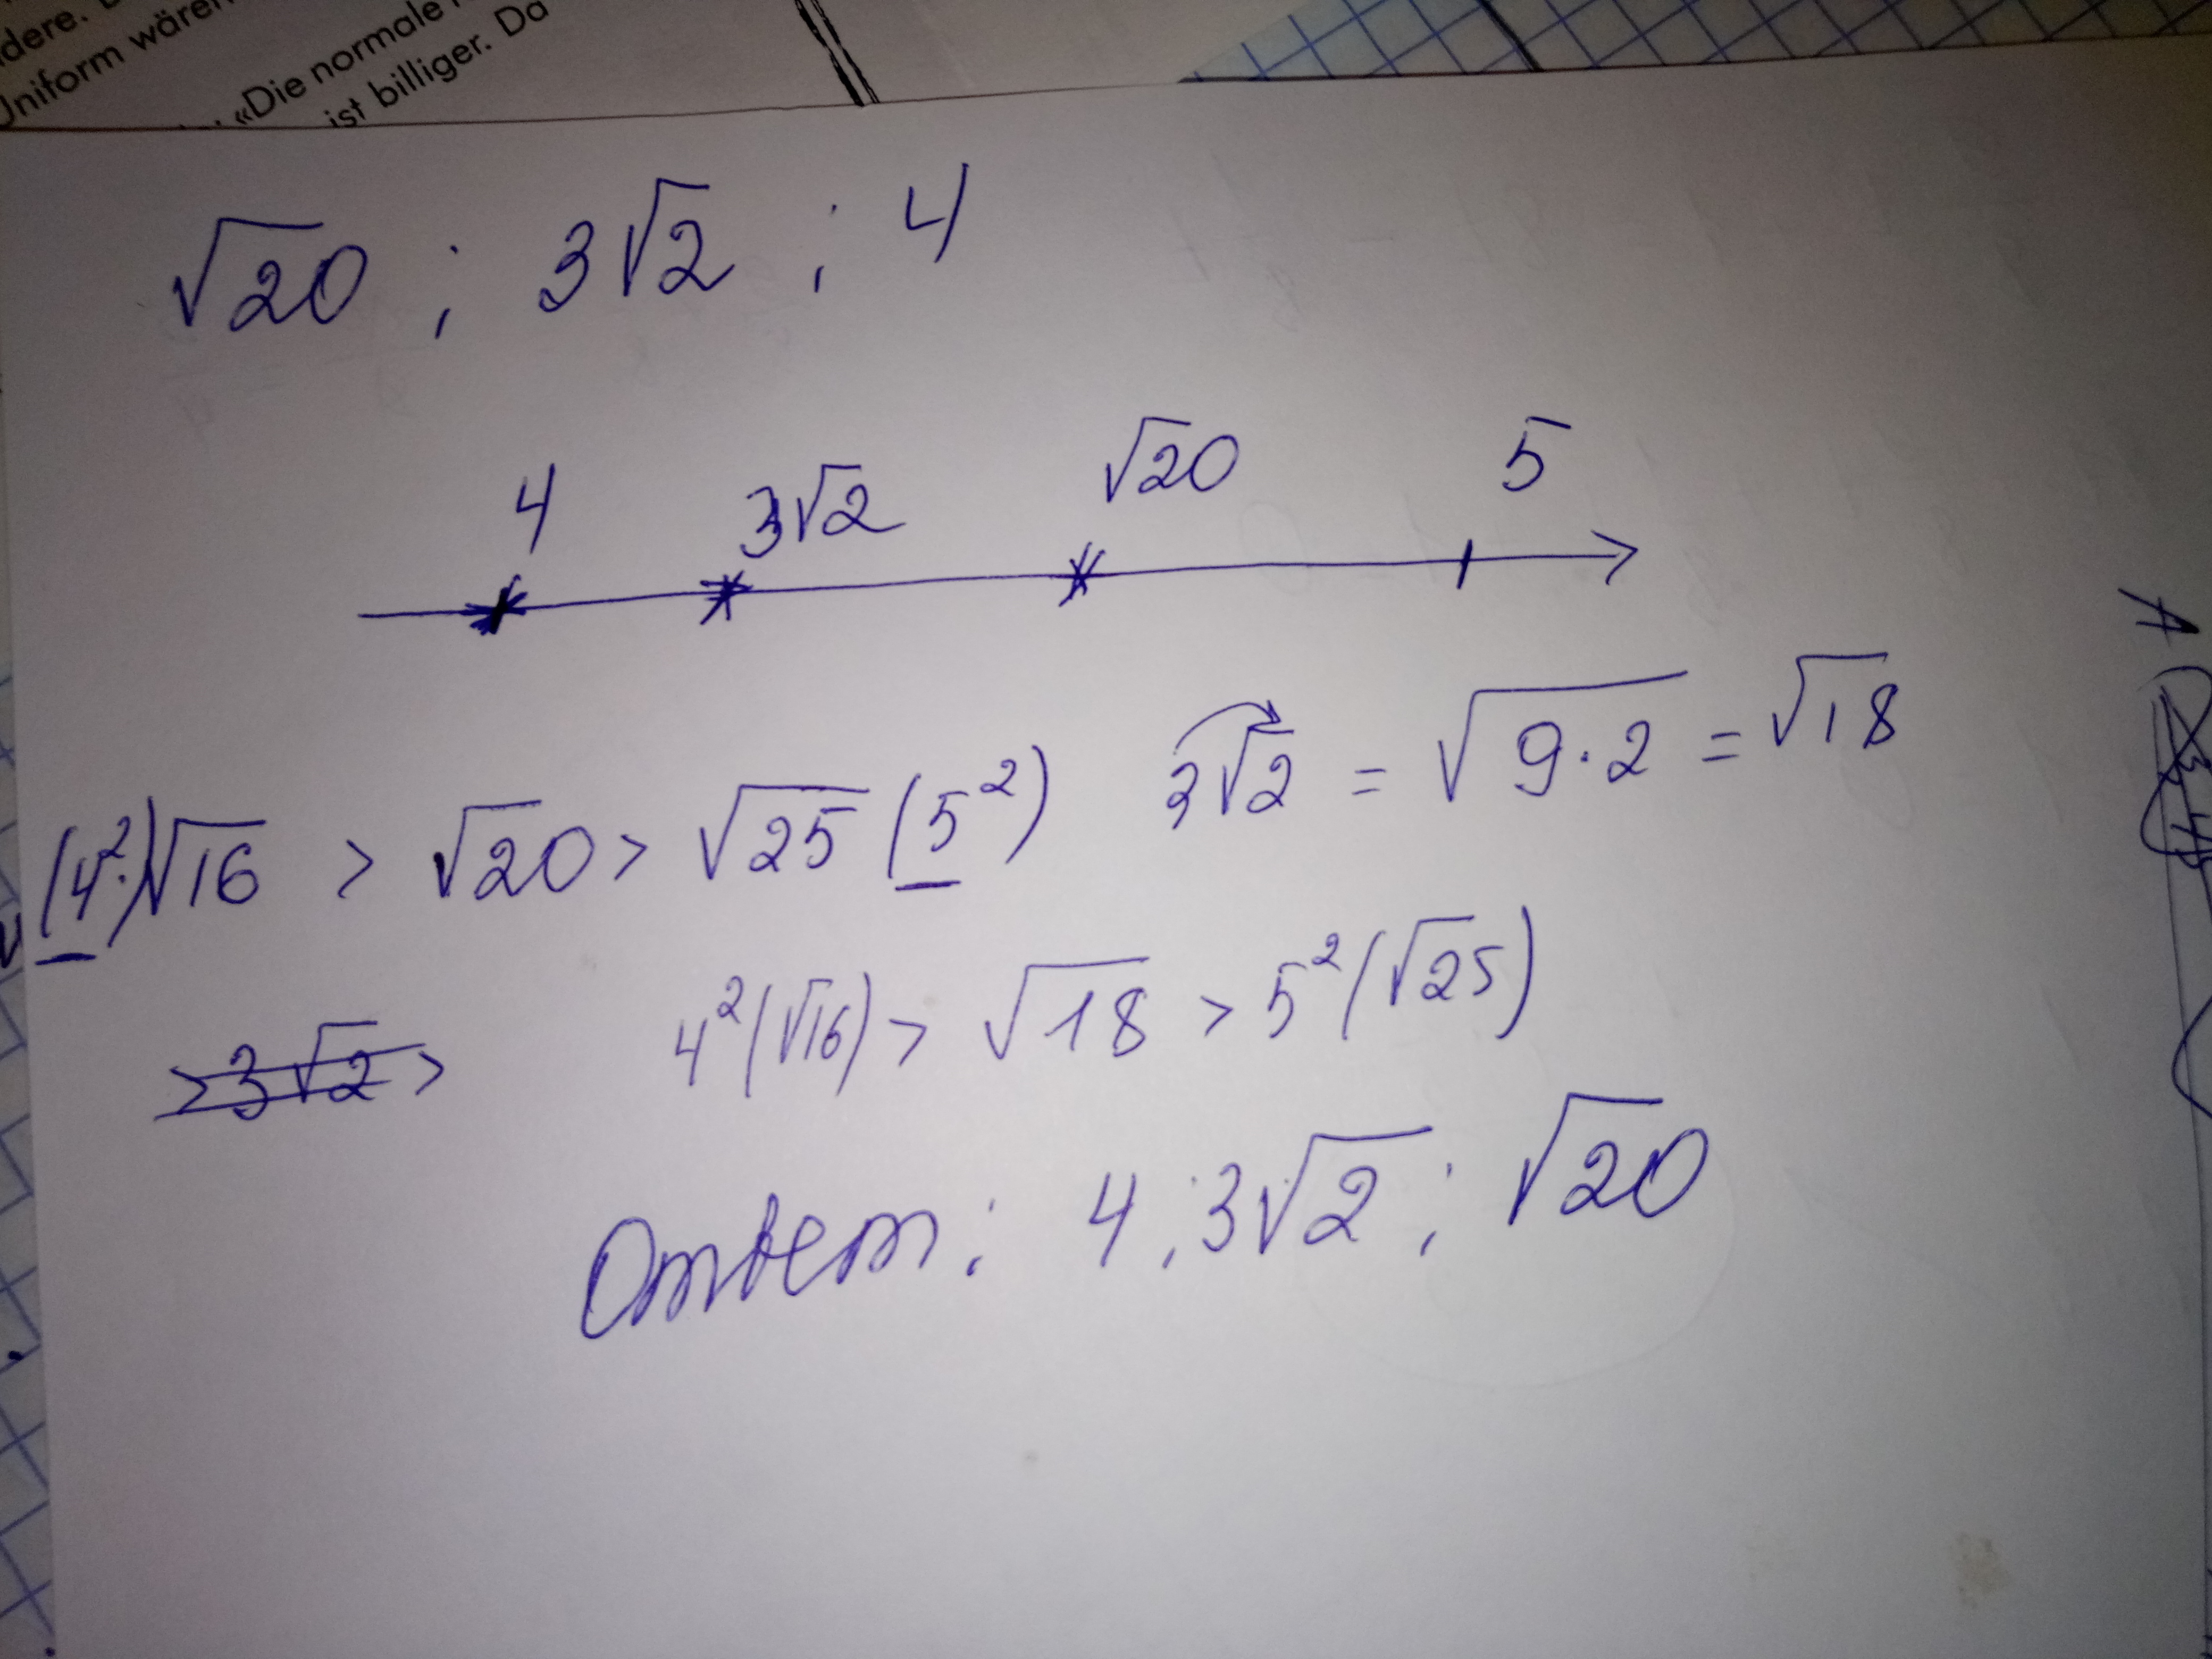 dere.
Uniform wären
«Die normale
ist billiger. Da
√20 ; 3√2 ; 4
4 3√2 √20 5
(4²)√16 > √20 > √25 (5²) 3√2 = √9·2 = √18
>3√2> 4²(√16) > √18 > 5²(√25)
Ответ: 4; 3√2; √20